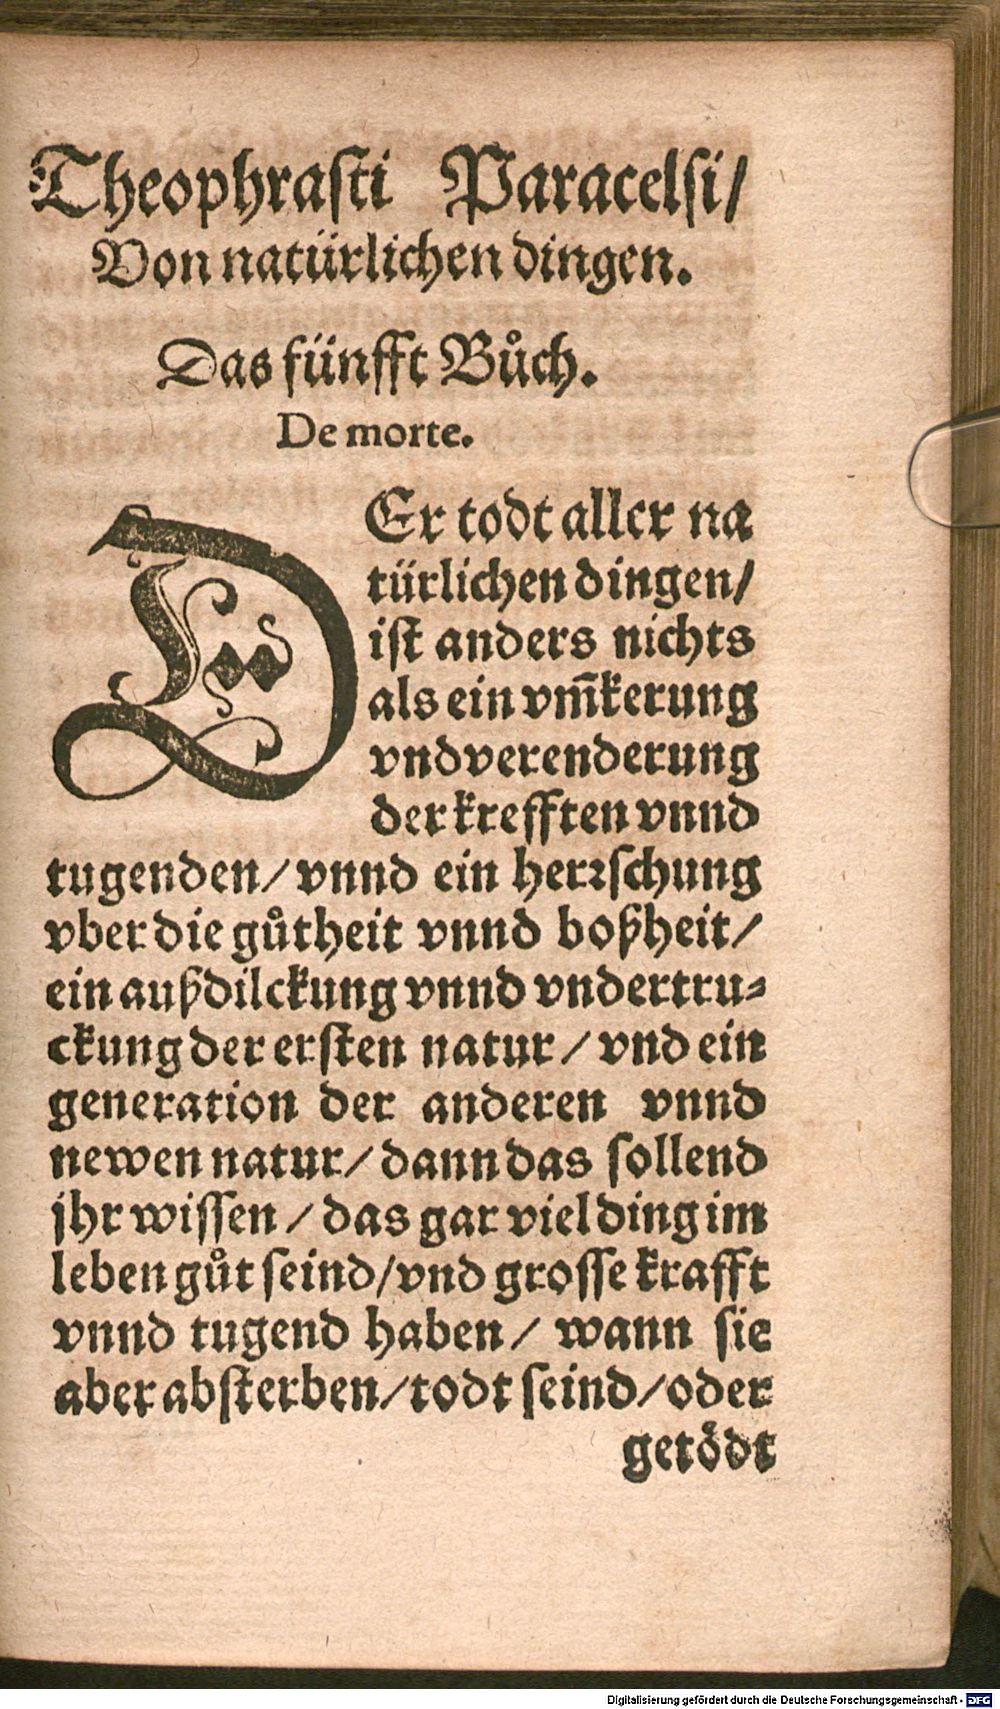 Theophrasti Paracelsi/
Von natürlichen dingen.
Das fünfft Bůch.
De morte.
DEr todt aller na
türlichen dingen/
ist anders nichts
als ein vm̄kerung
vnd verenderung
der krefften vnnd
tugenden/ vnnd ein herꝛschung
vber die gůtheit vnnd boßheit/
ein außdilckung vnnd vndertru-
ckung der ersten natur / vnd ein
generation der anderen vnnd
newen natur/ dann das sollend
jhr wissen / das gar viel ding im
leben gůt seind/vnd grosse krafft
vnnd tugend haben/ wann sie
aber absterben/todt seind/oder
getödt
Digitalisierung gefördert durch die Deutsche Forschungsgemeinschaft - DFG